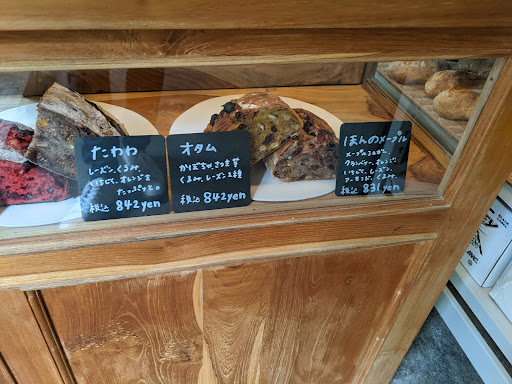 たわわ
レーズン、くるみ、
いちじく、オレンジを
たっぷりと。
税込 842yen
オタム
かぼちゃ、さつま芋
くるみ、レーズン2種
税込 842yen
ほんのメープル
メープルシュガー、
クランベリー、オレンジ、
いちじく、レーズン、
アーモンド、くるみ。
税込 831yen